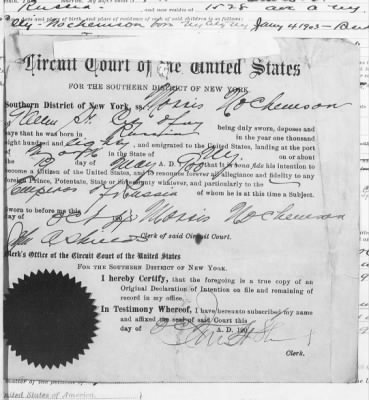 Russia and now resides at 1528 Ave A N Y
date and place of birth, and place of residence of each of said children is as follows:
born Jany 4 1903
Circuit Court of the United States
FOR THE SOUTHERN DISTRICT OF NEW YORK.
Southern District of New York, ss. Morris Nochemson
St. City of NY being duly sworn, deposes and
says that he was born in Russia in the year one thousand
eight hundred and eighty, and emigrated to the United States, landing at the port
of New York in the State of NY on or about
the day of May A. D. that it is bona fide his intention to
become a Citizen of the United States, and to renounce forever all allegiance and fidelity to any
foreign Prince, Potentate, State or Sovereignty whatever, and particularly to the
Emperor of Russia of whom he is at this time a Subject.
Sworn to before me this
day of Morris Nochemson
John A Shields Clerk of said Circuit Court.
Clerk's Office of the Circuit Court of the United States
FOR THE SOUTHERN DISTRICT OF NEW YORK.
I hereby Certify, that the foregoing is a true copy of an
Original Declaration of Intention on file and remaining of
record in my office.
In Testimony Whereof, I have hereunto subscribed my name
and affixed the seal of said Court this
day of A. D. 190
Clerk.
United States of America.